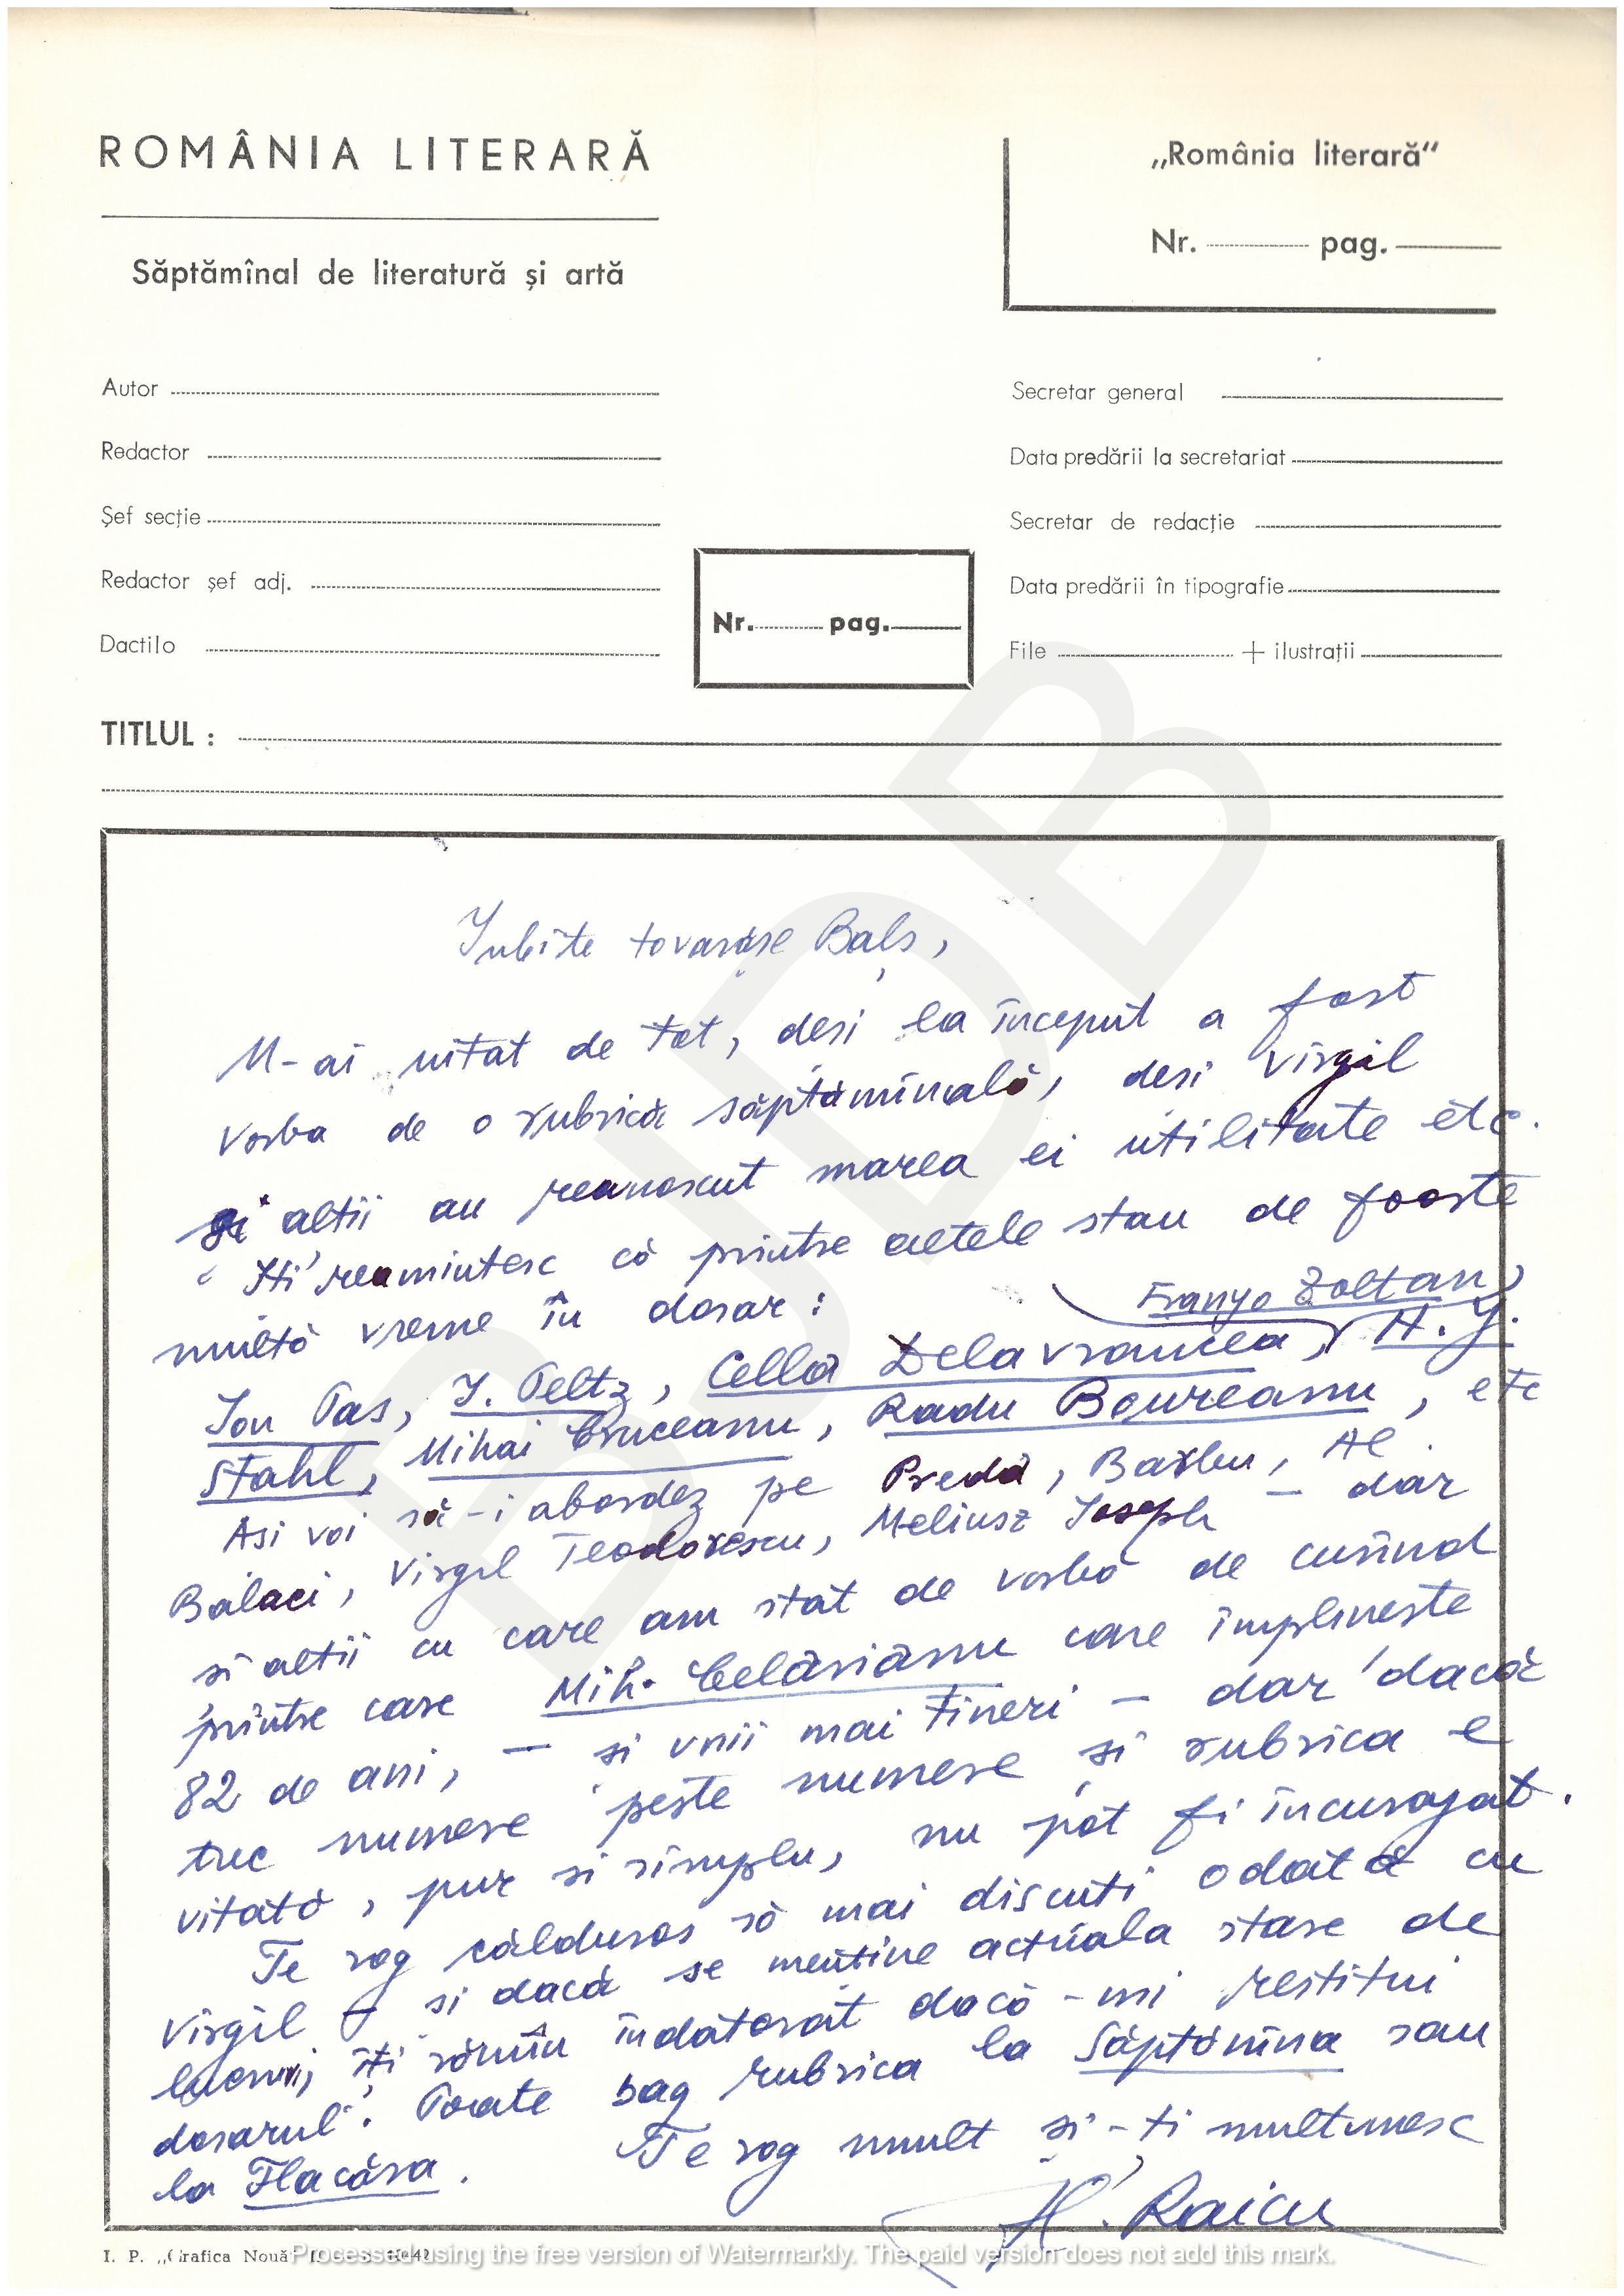 ROMÂNIA LITERARĂ
Săptămînal de literatură și artă
„România literară“
Nr. pag.
Autor
Redactor
Șef secție
Redactor șef adj.
Dactilo
Nr. pag.
Secretar general
Data predării la secretariat
Secretar de redacție
Data predării în tipografie
File + ilustrații
TITLUL :
Iubite tovarășe Balș,
M-ai uitat de tot, desi la început a fost
vorba de o rubrică săptămînală, desi Virgil
și altii au recunoscut marea ei utilitate etc.
Iti reamintesc că printre altele stau de foarte
multă vreme în dosar :
Franyo Zoltan,
Ion Pas, I. Peltz, Cella Delavrancea, H. Y.
Stahl, Mihai Cruceanu, Radu Boureanu, etc
Asi voi să-i abordez pe Preda, Barbu, Al.
Balaci, Virgil Teodorescu, Meliusz Joseph – dar
si altii cu care am stat de vorbă de curînd
printre care Mih. Celarianu care împlineste
82 de ani, – si unii mai tineri – dar dacă
trec numere peste numere si rubrica e
uitată, pur si simplu, nu pot fi încurajat.
Te rog călduros să mai discuti odată cu
Virgil – si dacă se mentine actuala stare de
lucruri, îti rămîn îndatorat dacă-mi restitui
dosarul. Poate bag rubrica la Săptămîna sau
la Flacăra.
Te rog mult si-ti multumesc
Al. Raicu
I. P. „Grafica Nouă"
Processed using the free version of Watermarkly. The paid version does not add this mark.
BJDB